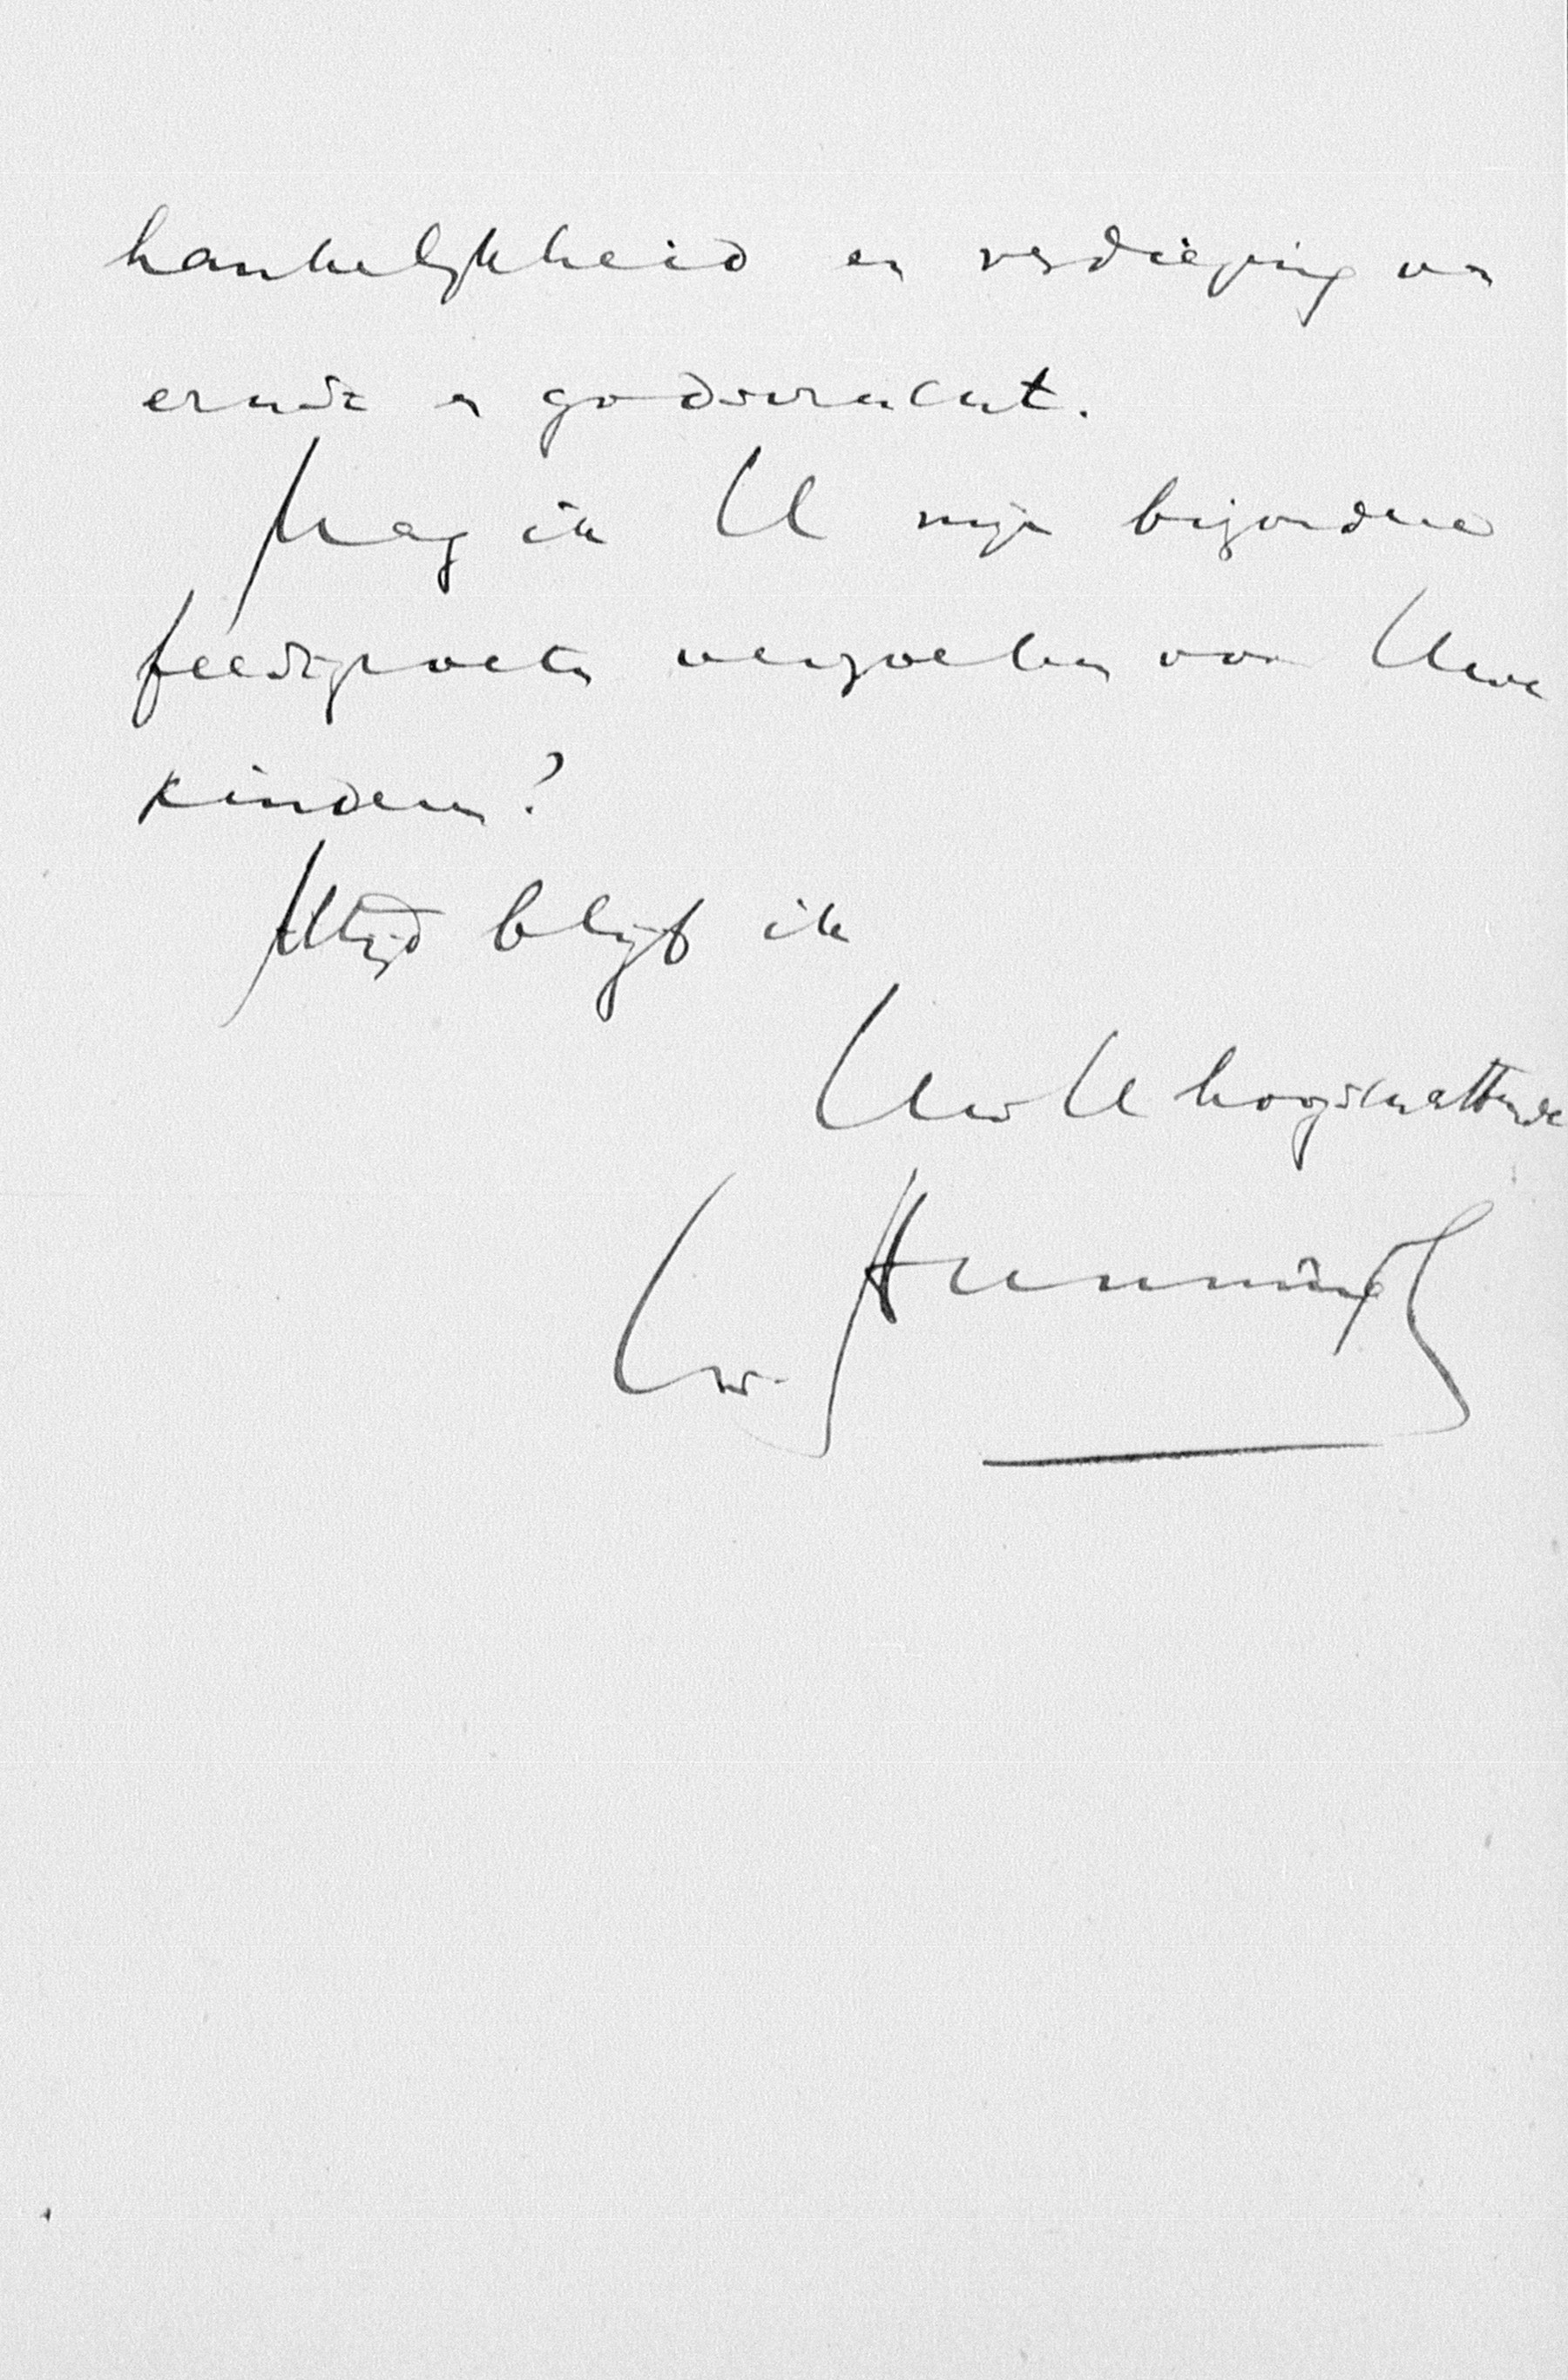 hankelijkheid en verdieping van
ernst en godsvrucht.
Mag ik U mijn bijzondere
feestgroeten verzoeken voor Uwe
kinderen?
Altijd blijf ik
Uw U hoogschattende